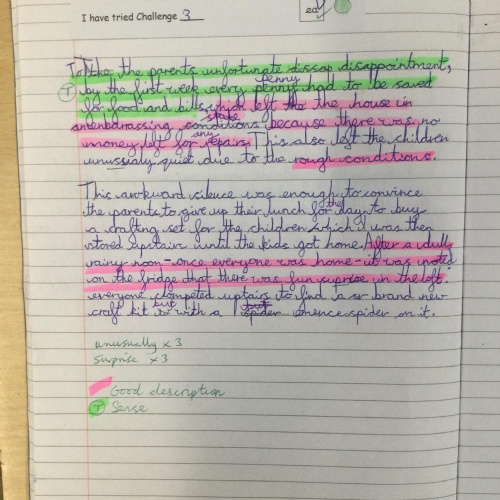 I have tried Challenge 3
To the the parents unfortunate dissap disappointment,
penny
T by the first week every penny had to be saved
for food and bills, which left the to the house in
state
an embarassing conditions because there was no
any
money left for repairs. This also left the children
unussialy quiet due to the rough conditions.
This awkward silence was enough to convince
the
the parents to give up their lunch for day to buy
a crafting set for the children, which I was then
stored upstairs until the kids got home. After a dull,
rainy noon - once everyone was home - it was noted
on the fridge that there was fun suprise in the loft.
everyone clompeted uptairs to find a brand new
but
craft kit with a spider spider on it.
unusually x 3
surprise x 3
Good description
T Sense